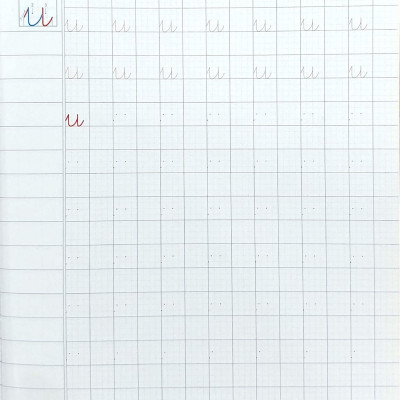 u u u u u u u u
u u u u u u u
u